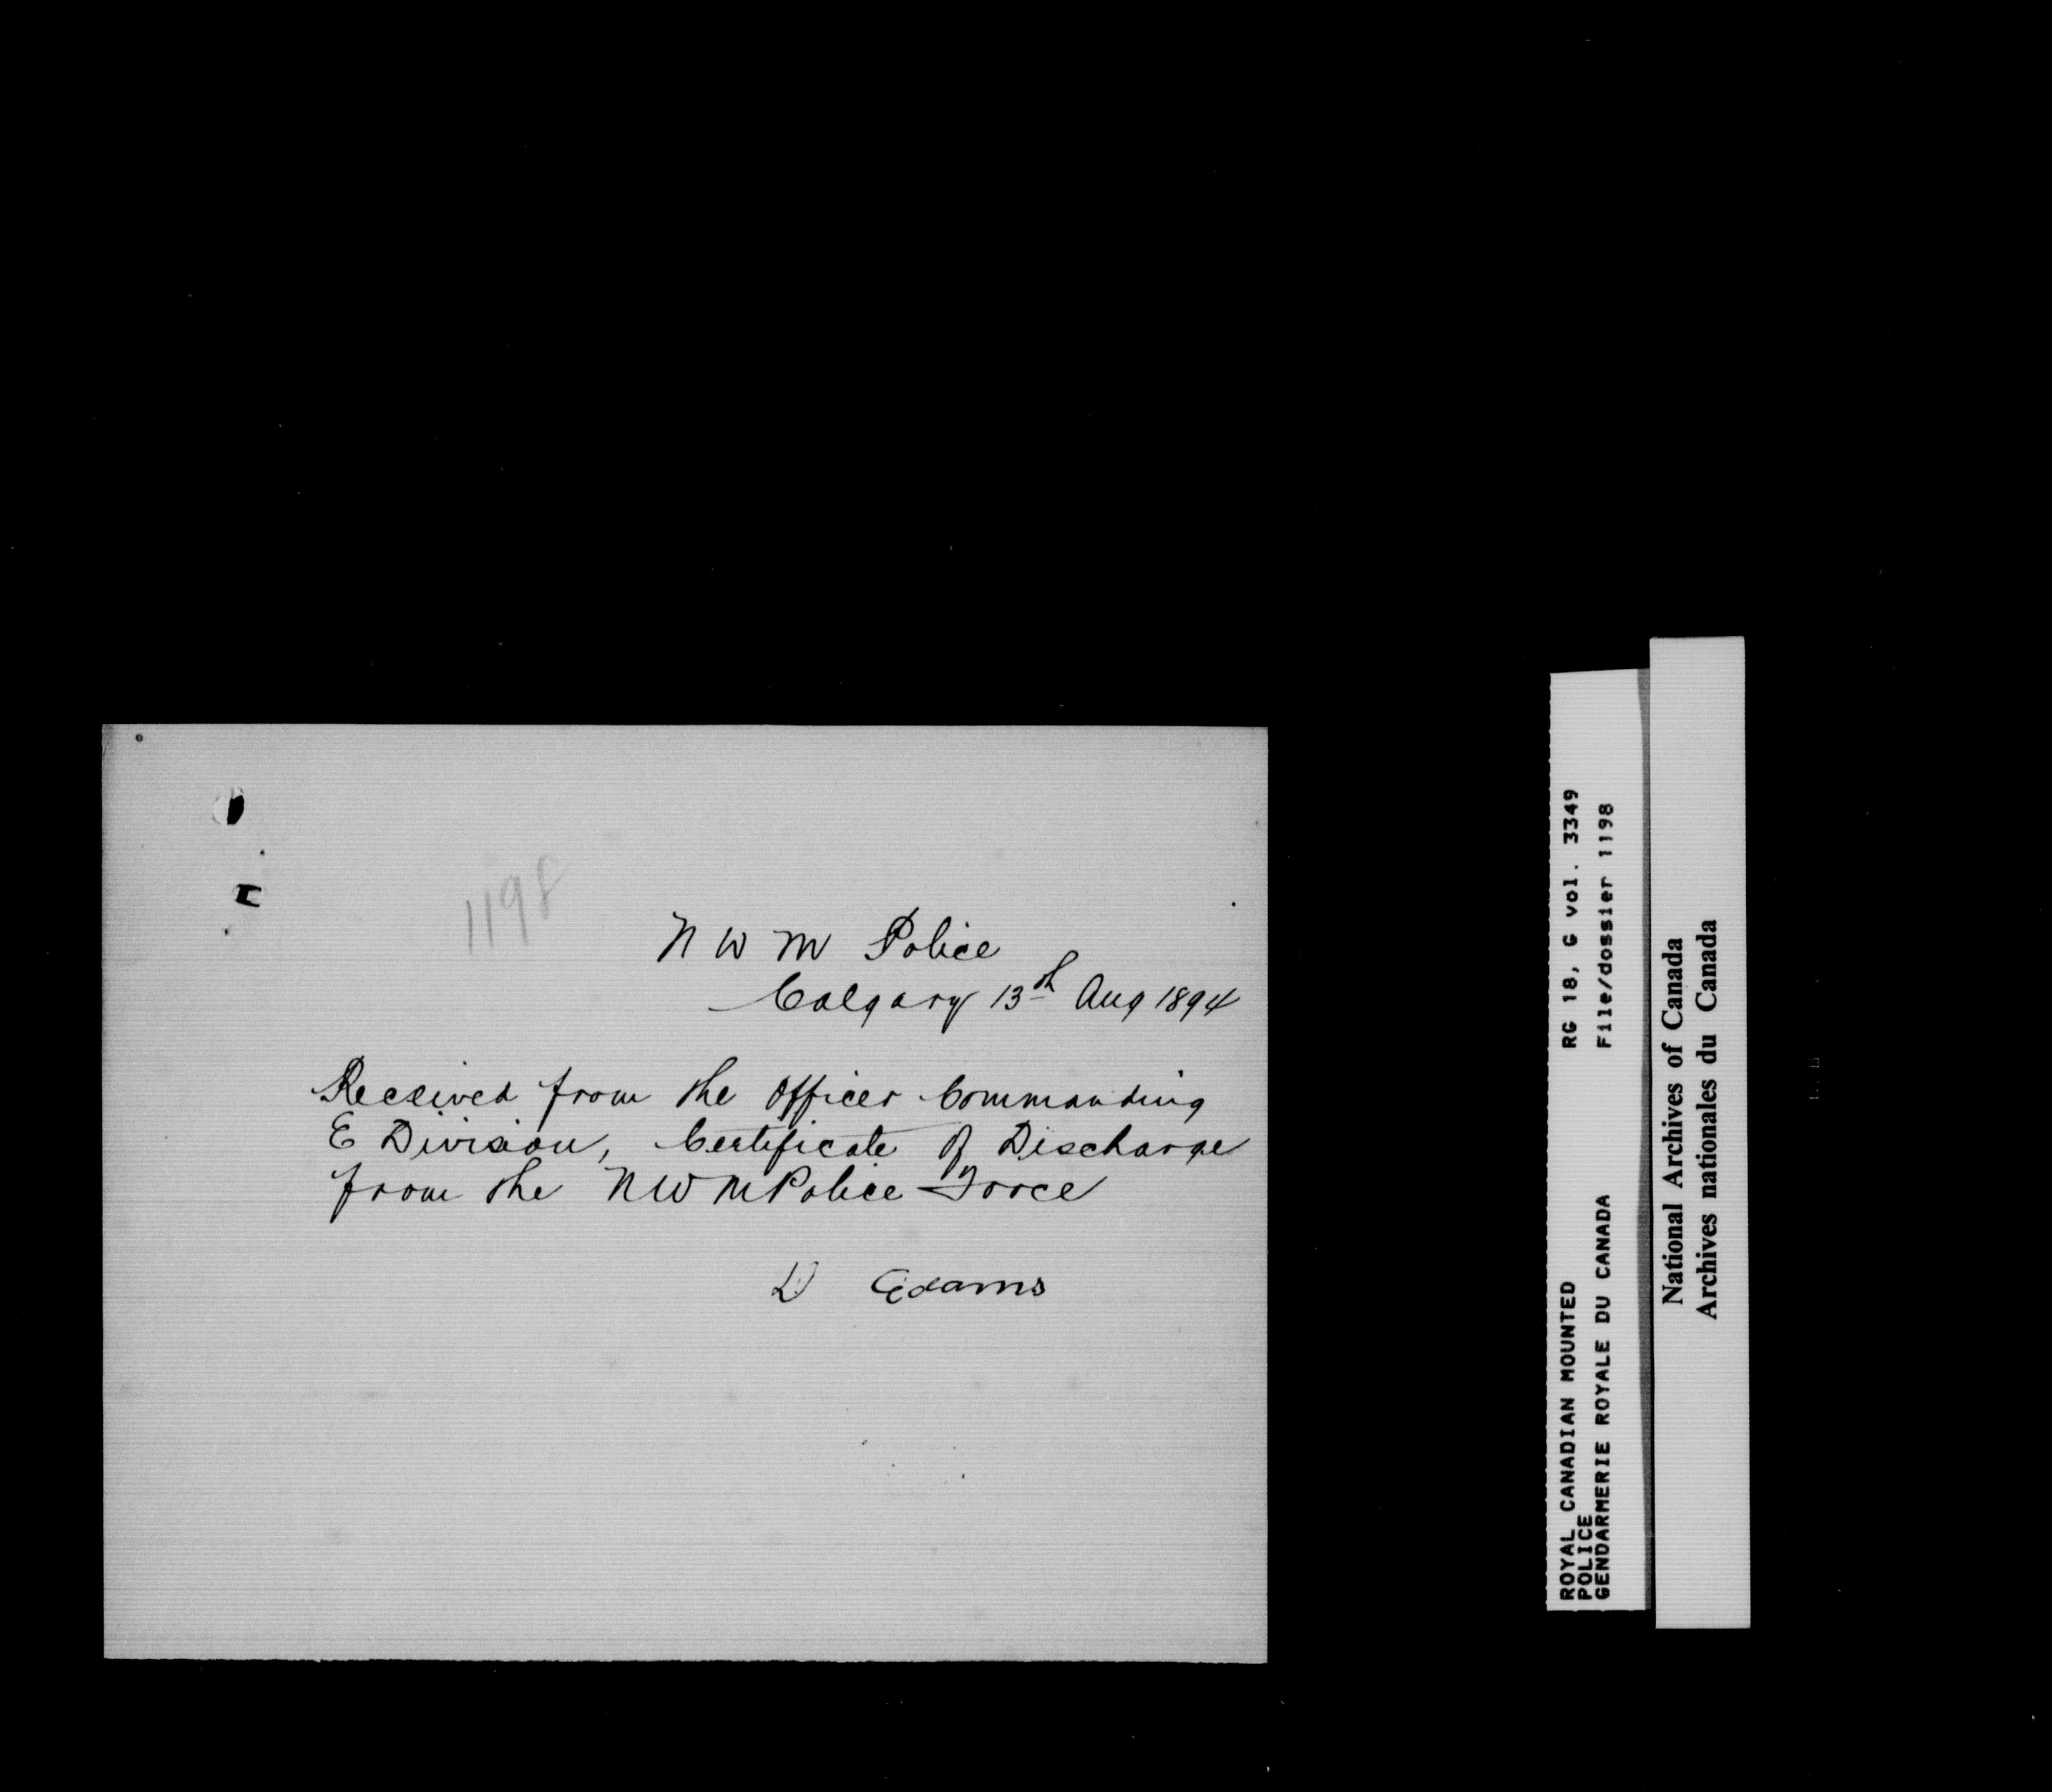 1198
N W M Police
Calgary 13th Aug 1894
Received from the Officer Commanding
E Division, Certificate of Discharge
from the N W M Police Force
D Adams
ROYAL CANADIAN MOUNTED
POLICE
GENDARMERIE ROYALE DU CANADA
RG 18, G vol. 3349
File/dossier 1198
National Archives of Canada
Archives nationales du Canada